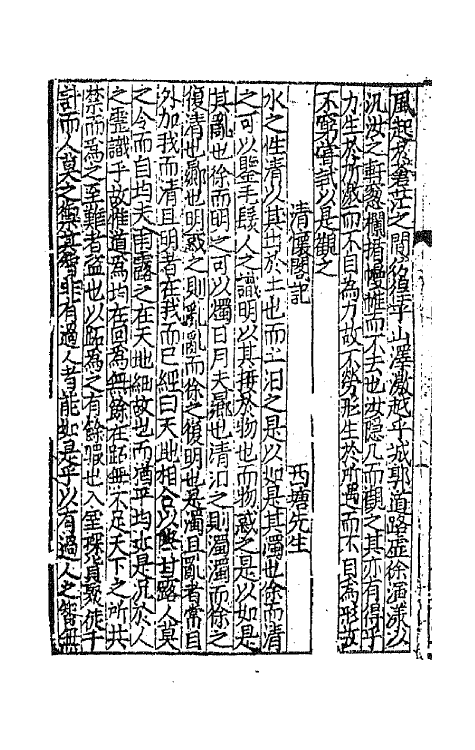 風起於蒼茫之間徬徨乎山澤激越乎城郭道路虛徐演漾以
汎汝之軒窓欄楯幔帷而不去也汝隱几而觀之其亦有得乎
力生於所激而不自為力故不勞形生於所遇而不自為形故
不窮嘗試以是觀之
清暖閣記 西塘先生
水之性清以其出於土也而土汨之是以如是其濁也徐而清
之可以鑒毛髮人之識明以其接於物也而物惑之是以如是
其亂也徐而明之可以燭日月夫曏也清汨之則濁濁而徐之
復清也曏也明惑之則亂亂而徐之復明也是濁且亂者常自
外加我而清且明者在我而已經曰天地相合以降甘露人莫
之令而自均夫甘露之在天地細故也而猶平均如是况於人
之靈識乎故惟道為均在回為無餘在跖無不足天下之所共
禁而為之至難者盜也以跖為之有餘暇也入室探
徒千
計而人莫之禦其
非有過人者能如是乎以有過人之
無